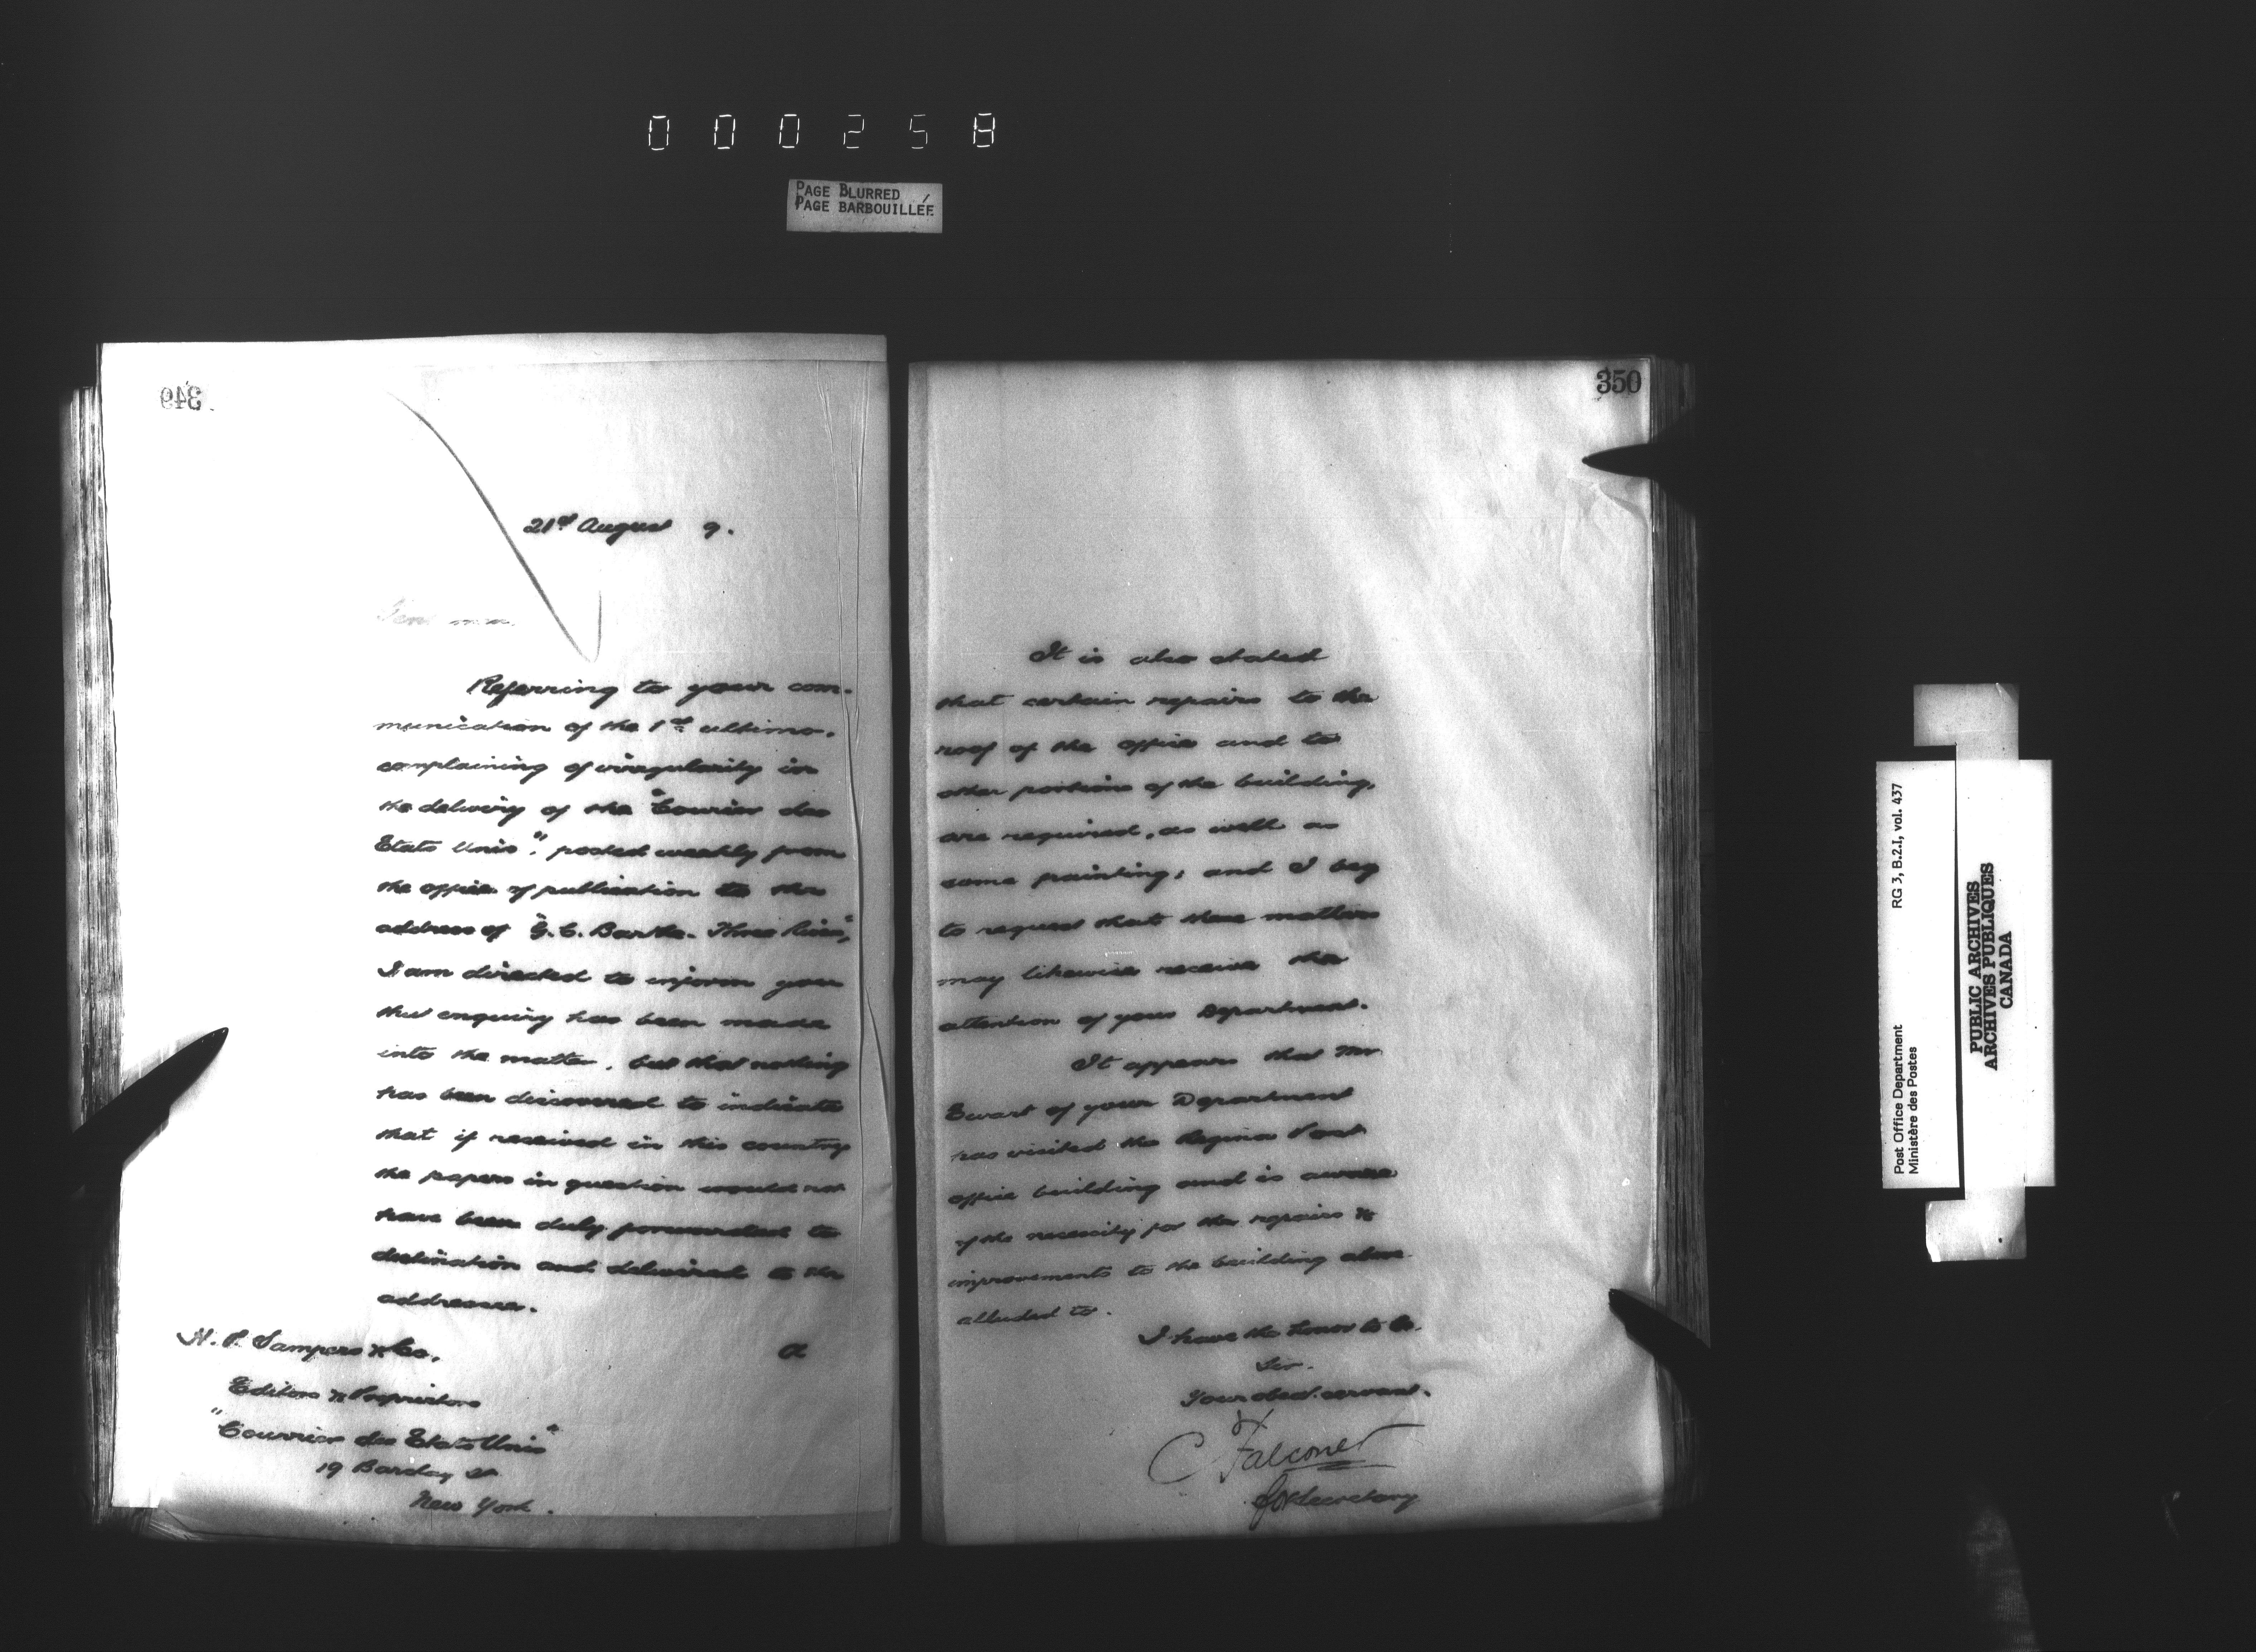 000258
PAGE BLURRED
PAGE BARBOUILLÉE
349
21st August 9.
Gentlemen.
Referring to your com-
munication of the 1st ultimo,
complaining of irregularity in
the delivery of the "Courier des
Etats Unis", posted weekly from
the office of publication to the
address of "G. C. Three Rivers",
I am directed to inform you
that enquiry has been made
into the matter, but that nothing
has been discovered to indicate
that if received in this country
the papers in question would not
have been duly forwarded to
destination and delivered to the
addressee.
H. P. Sampers & Co.
Editors & Proprietors
"Courrier des Etats Unis"
19 Barclay St
New York.
350
It is also stated
that certain repairs to the
roof of the office and to
other portions of the building,
are required, as well as
some painting; and I beg
to request that these matters
may likewise receive the
attention of your Department.
It appears that Mr
Ewart of your Department
has visited the Regina Post
office building and is aware
of the necessity for the repairs &
improvements to the building above
alluded to.
I have the honor to be.
Sir.
Your obed. servant.
C Falconer
for Secretary
Post Office Department RG 3, B.2.I, vol. 437
Ministère des Postes
PUBLIC ARCHIVES
ARCHIVES PUBLIQUES
CANADA